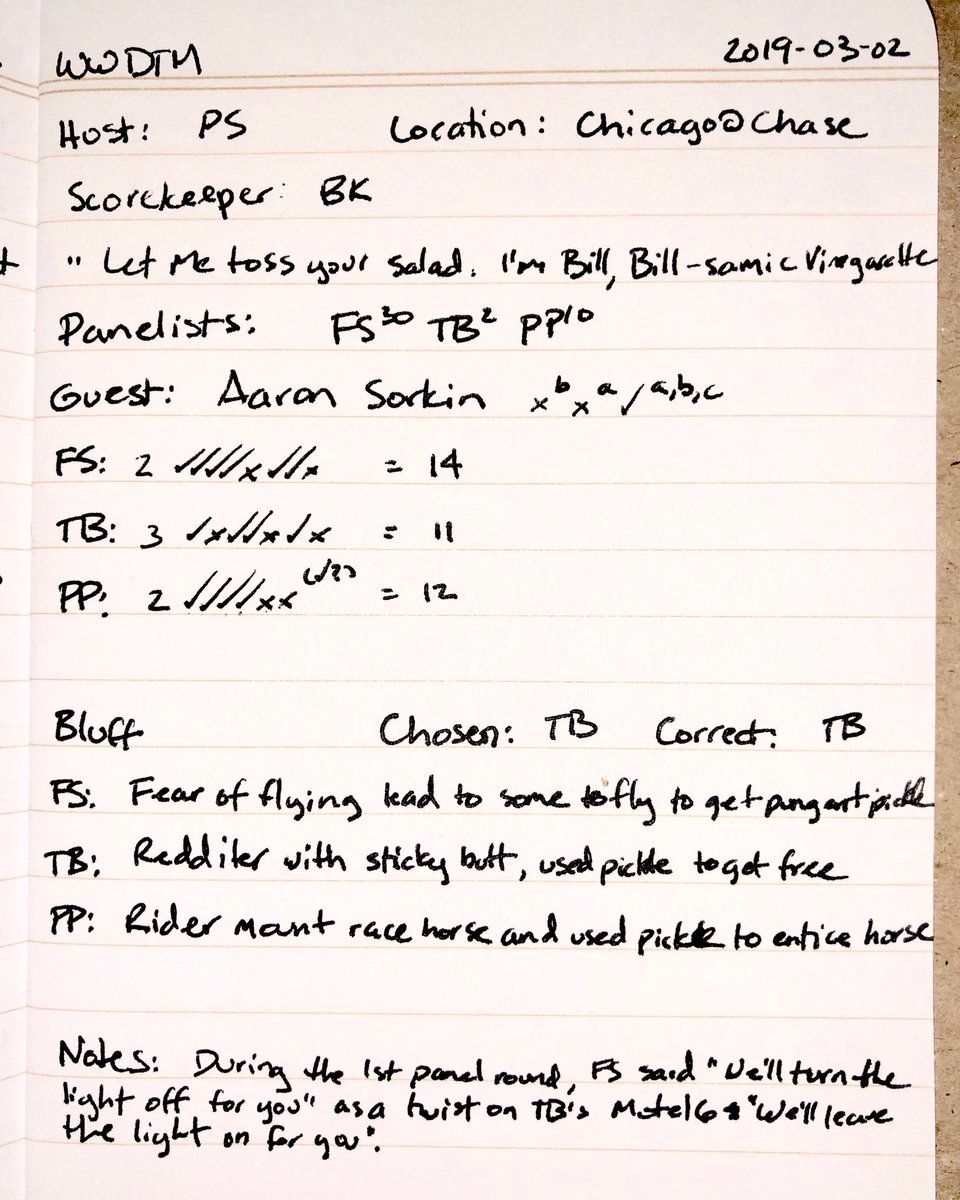 WWDTM 2019-03-02
Host: PS Location: Chicago@Chase
Scorekeeper: BK
"Let Me toss your salad. I'm Bill, Bill-samic Vinegarette
Panelists: FS³⁰ TB² PP¹⁰
Guest: Aaron Sorkin xᵇxᵃ✓ᵃ,ᵇ,ᶜ
FS: 2 ✓✓✓✓x✓✓x = 14
TB: 3 ✓x✓✓x✓x = 11
PP: 2 ✓✓✓✓xx = 12
Bluff Chosen: TB Correct: TB
FS: Fear of flying lead to some to fly to get pickle
TB: Redditer with sticky butt, used pickle to get free
PP: Rider mount race horse and used pickle to entice horse
Notes: During the 1st panel round, FS said "We'll turn the
light off for you" as a twist on TB's Motel 6 "We'll leave
the light on for you".